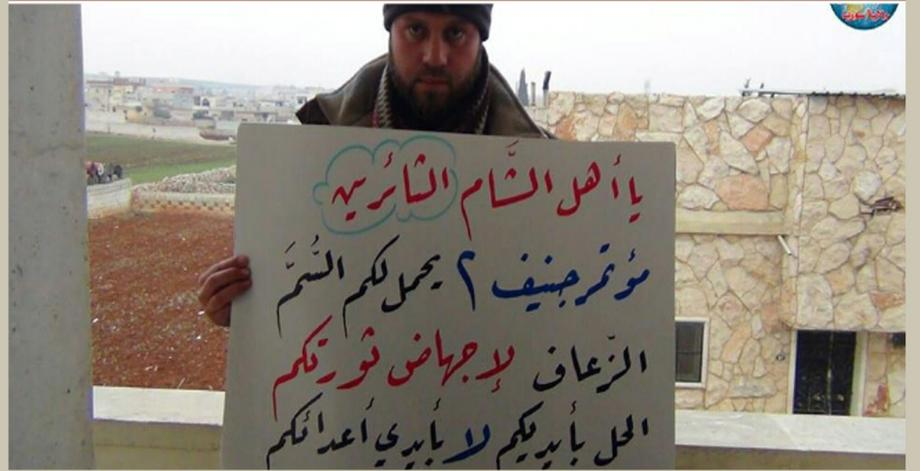 يا أهل الشَّام الثائرين
مؤتمر جنيف ٢ يحمل لكم السُّمَّ
الزّعاف لإجهاض ثورتكم
الحل بأيديكم لا بأيدي أعدائكم